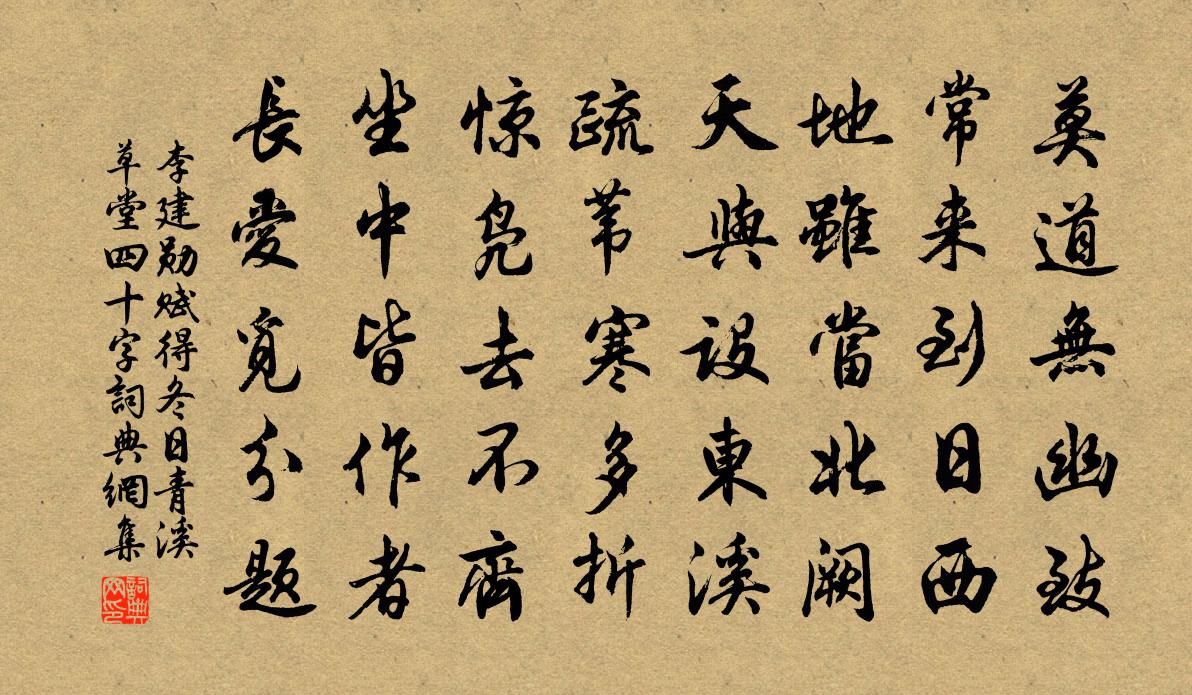 莫道無幽致
常来到日西
地雖當北闕
天與設東溪
疏苇寒多折
惊凫去不齊
坐中皆作者
長愛覓分題
李建勋赋得冬日青溪
草堂四十字詞典網集
詞典网印